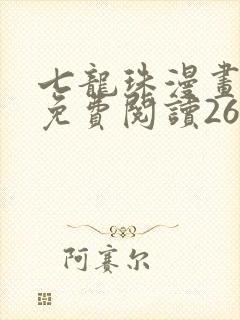 七龍珠漫畫
免費閱讀26
阿賽尔